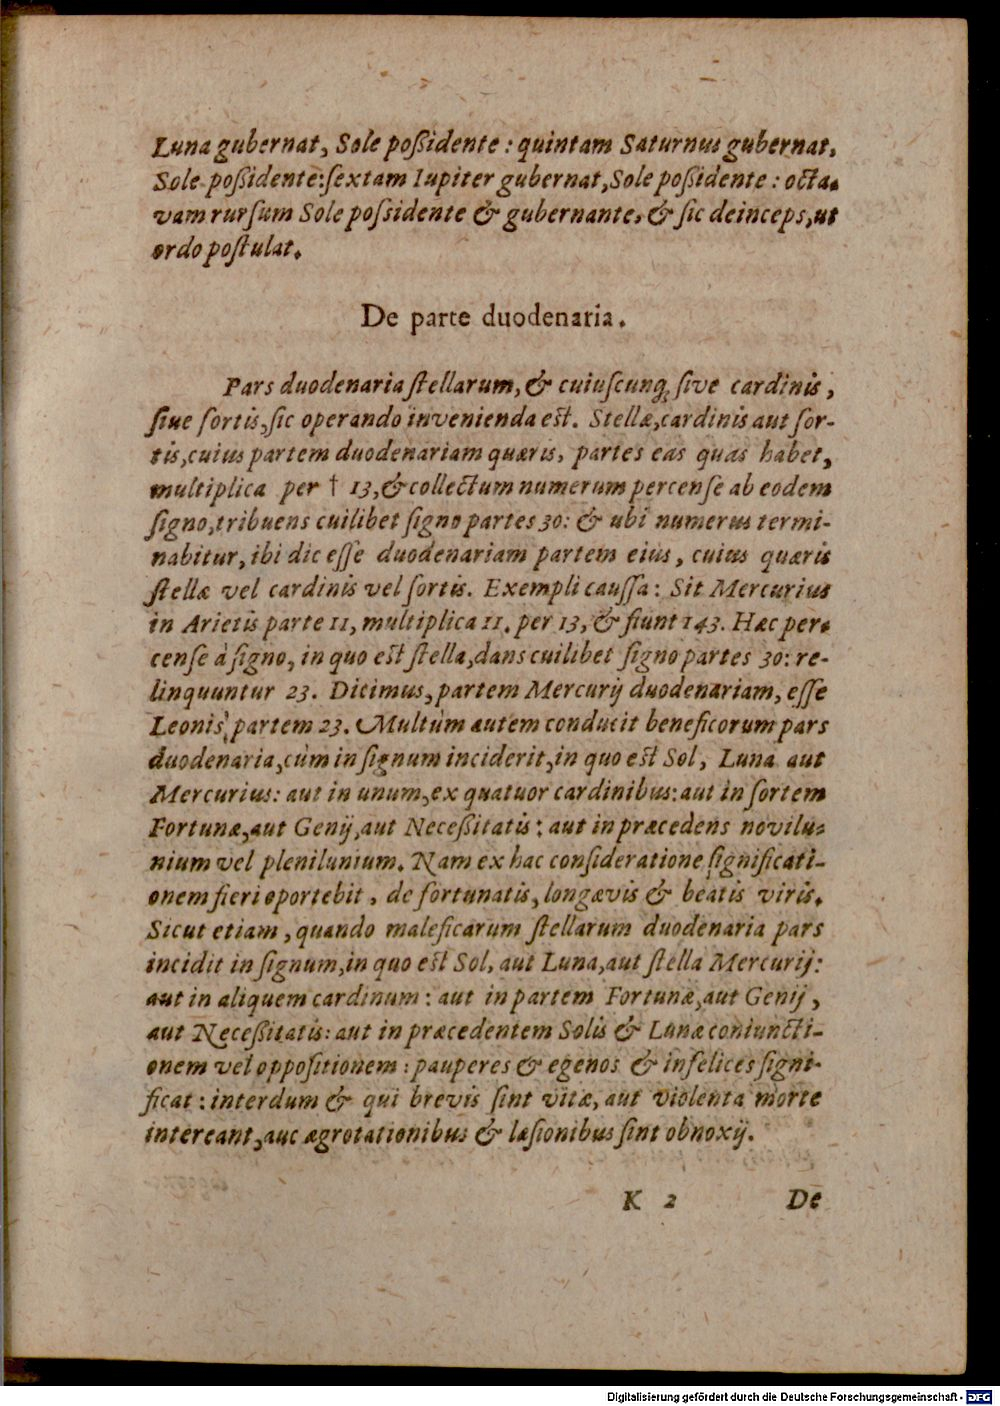 Luna gubernat, Sole poßidente : quintam Saturnus gubernat,
Sole poßidente: ſextam Iupiter gubernat, Sole poßidente : octa-
vam rurſum Sole poſsidente & gubernante, & ſic deinceps, ut
ordo poſtulat.
De parte duodenaria.
Pars duodenaria ſtellarum, & cuiuſcunq; ſive cardinis,
ſiue ſortis, ſic operando invenienda eſt. Stellæ, cardinis aut ſor-
tis, cuius partem duodenariam quæris, partes eas quas habet,
multiplica per † 13, & collectum numerum percenſe ab eodem
ſigno, tribuens cuilibet ſigno partes 30: & ubi numerus termi-
nabitur, ibi dic eſſe duodenariam partem eius, cuius quæris
ſtellæ vel cardinis vel ſortis. Exempli cauſſa: Sit Mercurius
in Arietis parte 11, multiplica 11. per 13, & fiunt 143. Hæc per-
cenſe à ſigno, in quo eſt ſtella, dans cuilibet ſigno partes 30: re-
linquuntur 23. Dicimus, partem Mercurij duodenariam, eſſe
Leonis partem 23. Multùm autem conducit beneficorum pars
duodenaria, cùm in ſignum inciderit, in quo eſt Sol, Luna aut
Mercurius: aut in unum, ex quatuor cardinibus: aut in ſortem
Fortunæ, aut Genij, aut Neceßitatis: aut in præcedens novilu-
nium vel plenilunium. Nam ex hac conſideratione ſignificati-
onem fieri oportebit, de fortunatis, longævis & beatis viris.
Sicut etiam, quando maleficarum ſtellarum duodenaria pars
incidit in ſignum, in quo eſt Sol, aut Luna, aut ſtella Mercurij:
aut in aliquem cardinum : aut in partem Fortunæ, aut Genij,
aut Neceßitatis: aut in præcedentem Solis & Lunæ coniuncti-
onem vel oppoſitionem : pauperes & egenos & infelices ſigni-
ficat : interdum & qui brevis ſint vitæ, aut violenta morte
intereant, auc ægrotationibus & læſionibus ſint obnoxij.
K 2 De
Digitalisierung gefördert durch die Deutsche Forschungsgemeinschaft - DFG